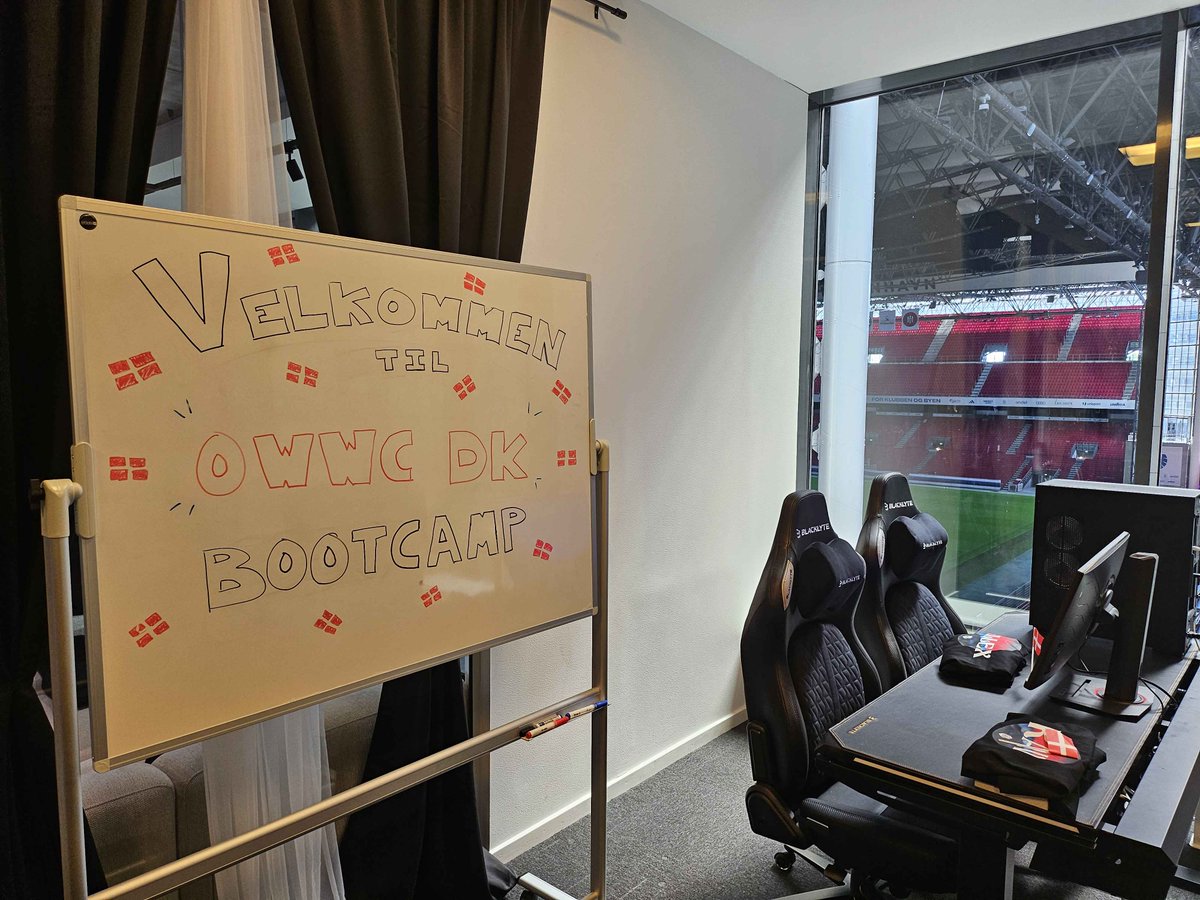 VELKOMMEN
TIL
OWWC DK
BOOTCAMP
HAVN
FOR KLUBBEN OG BYEN
BLACKLYTE
BLACKLYTE
BLACKLYTE